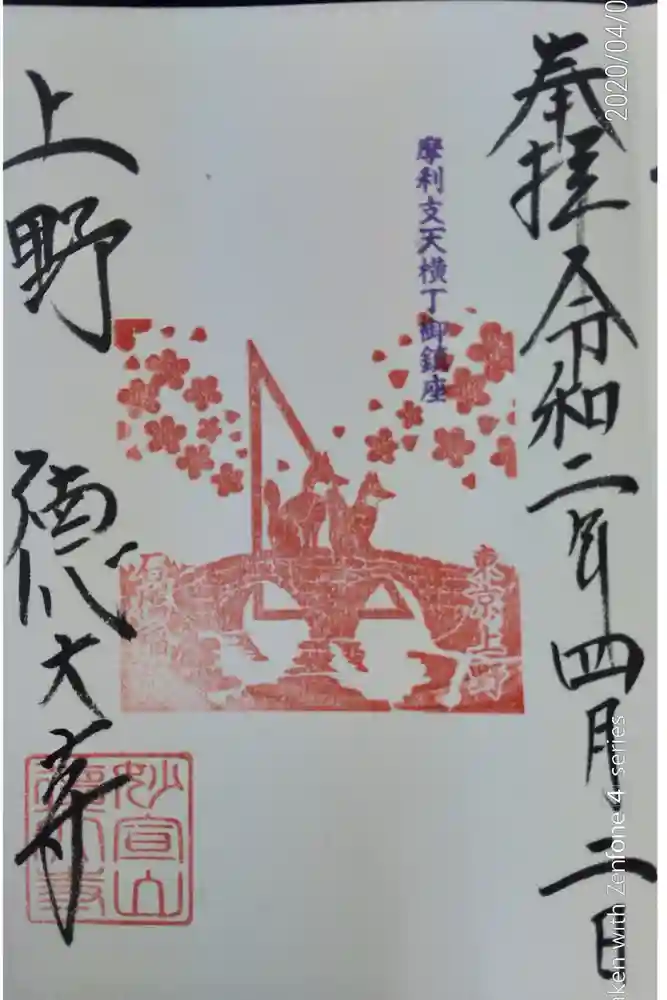 奉拝 令和二年四月二日
摩利支天横丁御鎮座
東京上野
上野 德大寺
妙宣山
德大寺
2020/04/0
aken with Zenfone 4 series